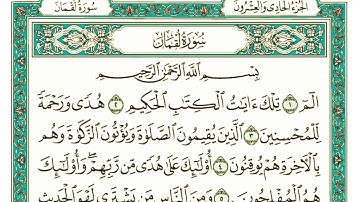 سُورَةُ لُقْمَانَ
الجُزْءُ الحَادِي وَالعِشْرُونَ
سُورَةُ لُقْمَانَ
بِسْمِ اللَّهِ الرَّحْمَٰنِ الرَّحِيمِ
الٓمٓ ١ تِلْكَ ءَايَٰتُ ٱلْكِتَٰبِ ٱلْحَكِيمِ ٢ هُدًى وَرَحْمَةً
لِّلْمُحْسِنِينَ ٣ ٱلَّذِينَ يُقِيمُونَ ٱلصَّلَوٰةَ وَيُؤْتُونَ ٱلزَّكَوٰةَ وَهُم
بِٱلْءَاخِرَةِ هُمْ يُوقِنُونَ ٤ أُو۟لَٰٓئِكَ عَلَىٰ هُدًى مِّن رَّبِّهِمْ ۖ وَأُو۟لَٰٓئِكَ
هُمُ ٱلْمُفْلِحُونَ ٥ وَمِنَ ٱلنَّاسِ مَن يَشْتَرِى لَهْوَ ٱلْحَدِيثِ